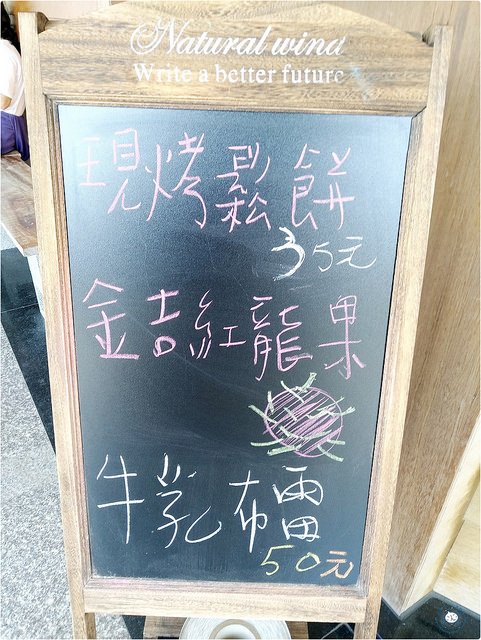 Natural wind
Write a better future
現烤鬆餅
35元
金吉紅龍果
牛乳布雷
50元